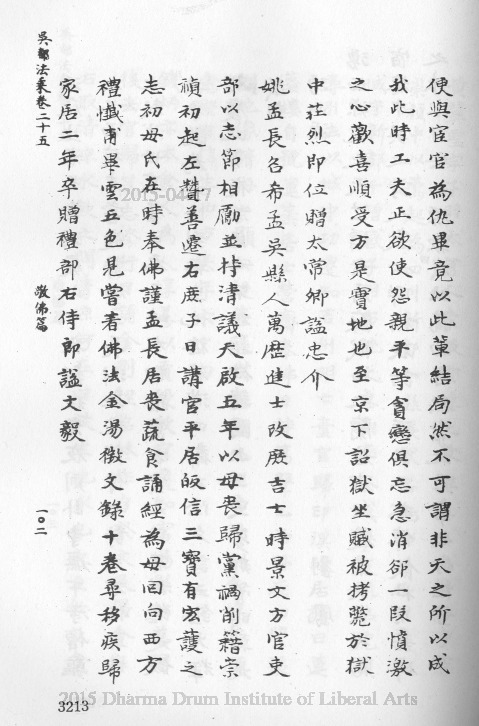 便與宦官為仇畢竟以此輩結局然不可謂非天之所以成
我此時工夫正欲使怨親平等貪戀俱忘急消卻一段憤激
之心歡喜順受方是實地也至京下詔獄坐贓被拷斃於獄
中莊烈即位贈太常卿謚忠介
姚孟長名希孟吳縣人萬歷進士改庶吉士時景文方官吏
部以志節相勵並持清議天啟五年以母喪歸黨禍削籍崇
禎初起左贊善遷右庶子日講官平居皈信三寶有宏護之
志初母氏在時奉佛謹孟長居喪蔬食誦經為母回向西方
禮懺甫畢雲五色見嘗著佛法金湯徵文錄十卷尋移疾歸
家居二年卒贈禮部右侍郎謚文毅
吳都法乘卷二十五
敬佛篇
一〇二
3213
2015-04-17
2015 Dharma Drum Institute of Liberal Arts